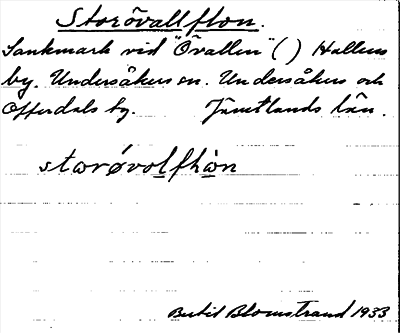 Storövallflon.
Sankmark vid "Övallen" ( ) Hallens
by. Undersåkers sn. Undersåkers och
Offerdals tg. Jämtlands län.
starøvolfhån
Bertil Blomstrand 1933